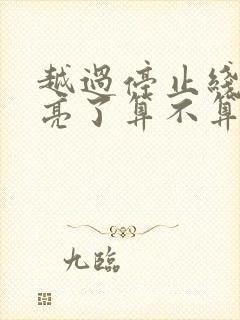 越過停止綫
亮了算不算
九臨